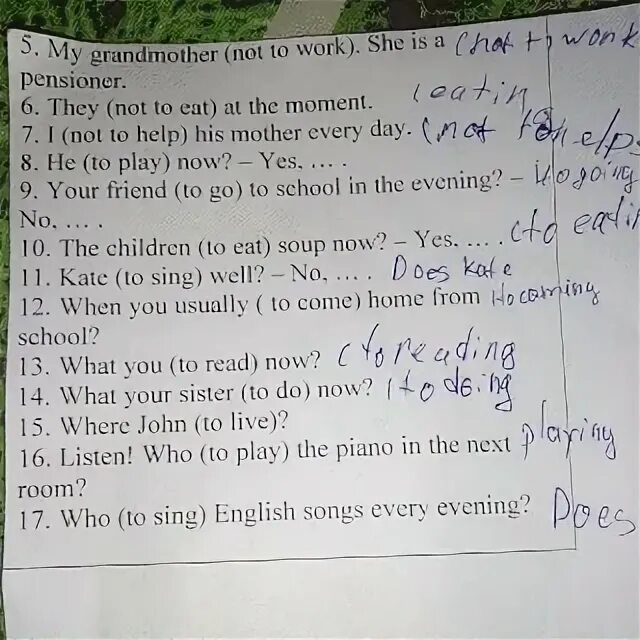 5. My grandmother (not to work). She is a (not to work
pensioner.
6. They (not to eat) at the moment. (eatin
7. I (not to help) his mother every day. (not to help
8. He (to play) now? – Yes, ... .
9. Your friend (to go) to school in the evening? – going
No, ... .
10. The children (to eat) soup now? – Yes, ... . (to eati
11. Kate (to sing) well? – No, ... . Does Kate
12. When you usually ( to come) home from
school?
13. What you (to read) now? (to reading
14. What your sister (to do) now? (to doing
15. Where John (to live)?
16. Listen! Who (to play) the piano in the next playing
room?
17. Who (to sing) English songs every evening? Does